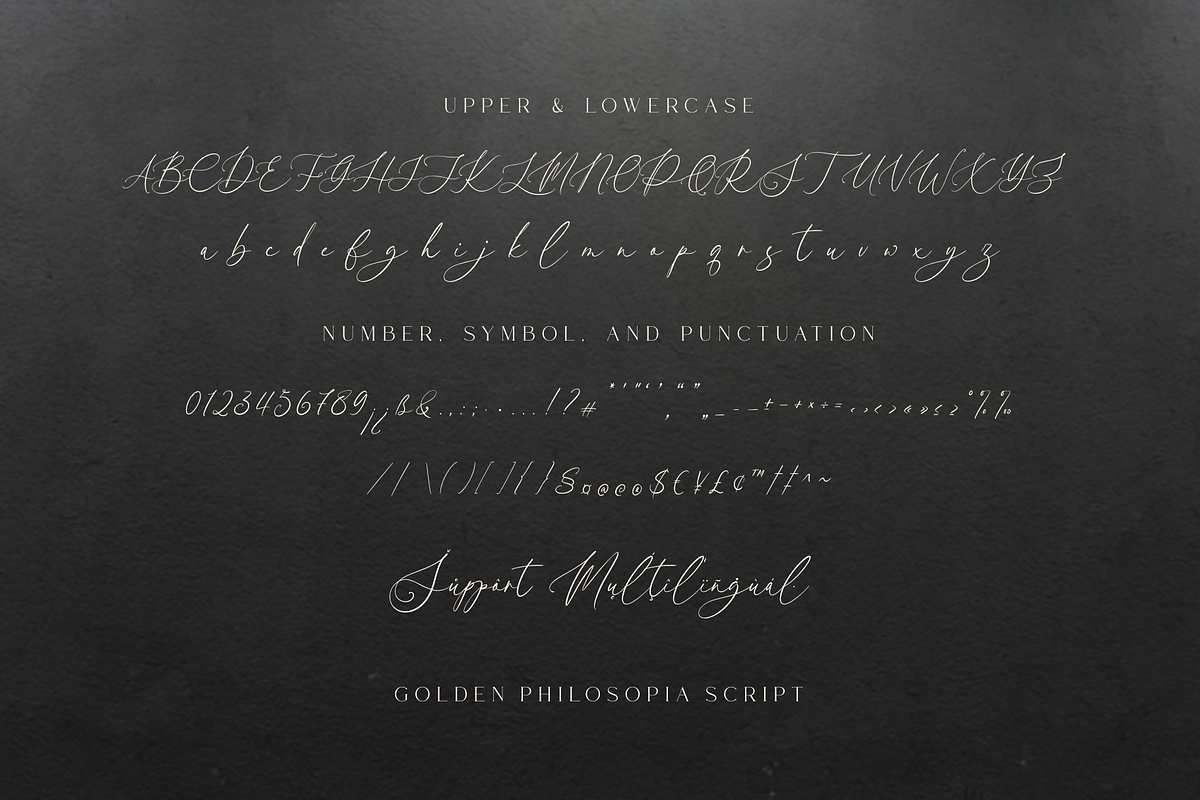 UPPER & LOWERCASE
ABCDEFGHIJKLMNOPQRSTUVWXYZ
a b c d e f g h i j k l m n o p q r s t u v w x y z
NUMBER, SYMBOL, AND PUNCTUATION
0123456789¡¿ß&.,:;·•...!?#*'"‘’“”‚„_-–—±−+×÷=‹›<>«»≤≥°%‰
/|\()[]{}§¤@©®$€¥£¢™†‡^~
Support Multilingual
GOLDEN PHILOSOPIA SCRIPT